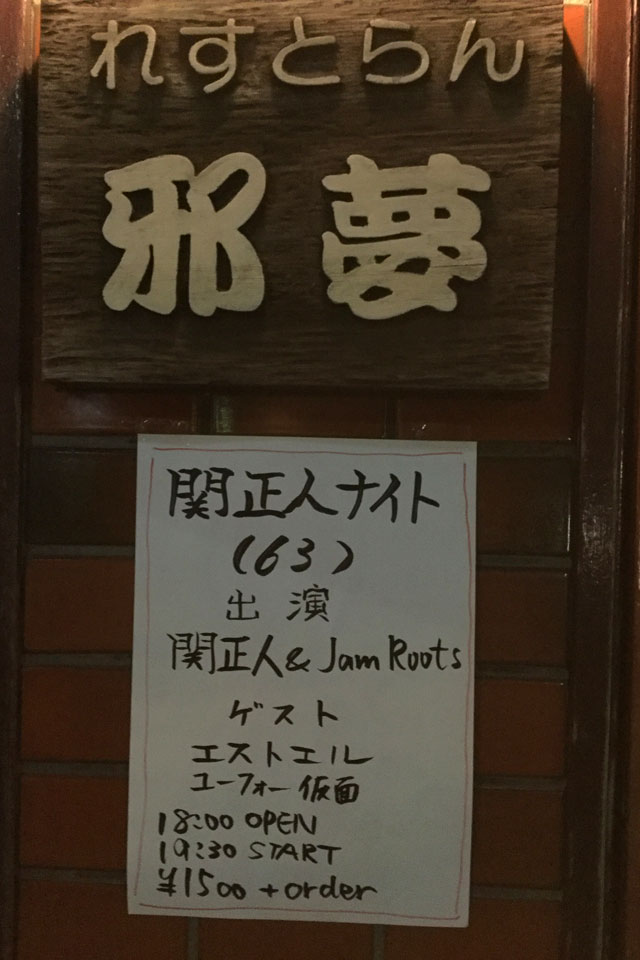 れすとらん
邪夢
関正人ナイト
(63)
出演
関正人 & Jam Roots
ゲスト
エストエル
ユーフォー仮面
18:00 OPEN
19:30 START
¥1500 + order